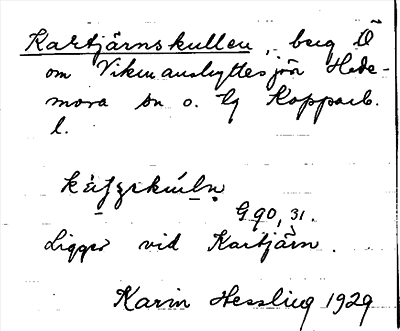 Kartjärnskullen, berg Ö
om Vikmanshyttesjön Hede-
mora sn o. tg Kopparb.
l.
G 90, 31.
Ligger vid Kartjärn.
Karin Hessling 1929